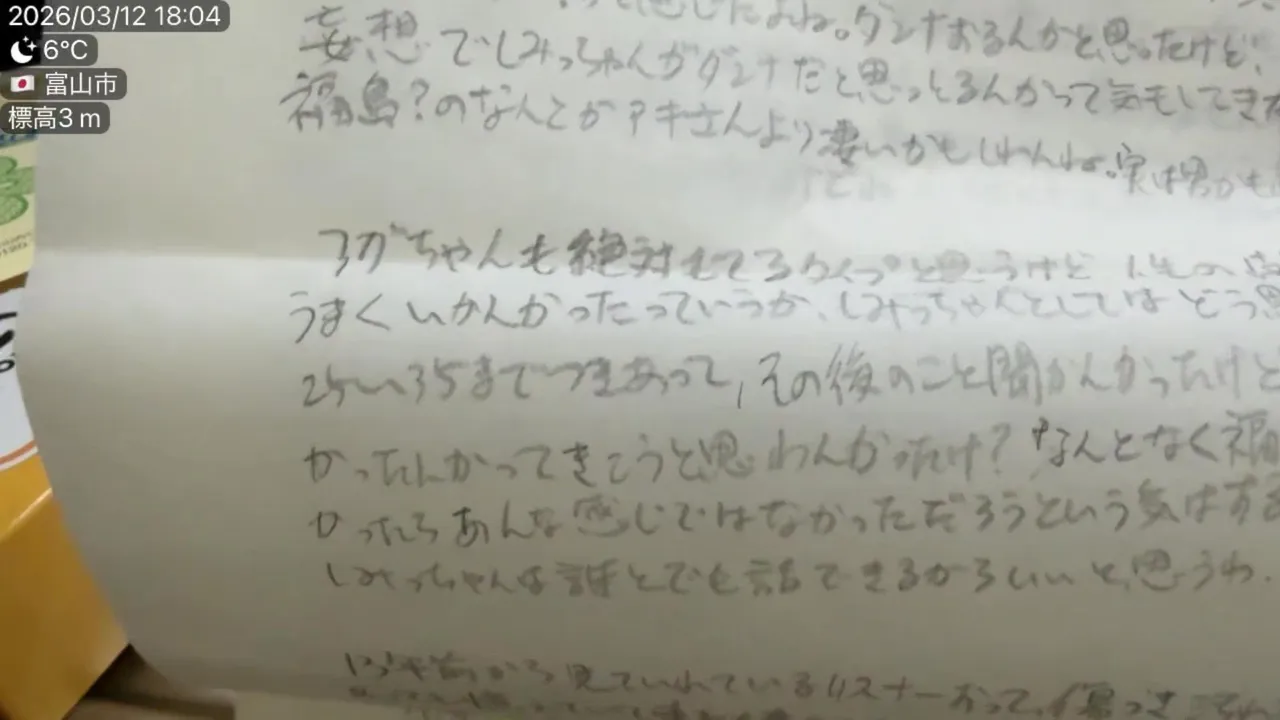 2026/03/12 18:04
6°C
富山市
標高3m
感じたよね。ダンナおるんかと思ったけど、
妄想でしみっちゃんがダンナだと思っとるんかって気もしてきた
福島?のなんとかアキさんより凄いかもしれんね。実は男かも
ちゃんも絶対もてるタイプと思うけど
うまくいかんかったっていうか、しみっちゃんとしてはどう思
35までつきあって、その後のこと聞かんかったけど
かってきこうと思わんかったけ? なんとなく福
かったらあんな感じではなかっただろうという気はする
しみっちゃんは誰とでも話できるからいいと思うわ.
13年前から見ていれているリスナーおって、傷つ